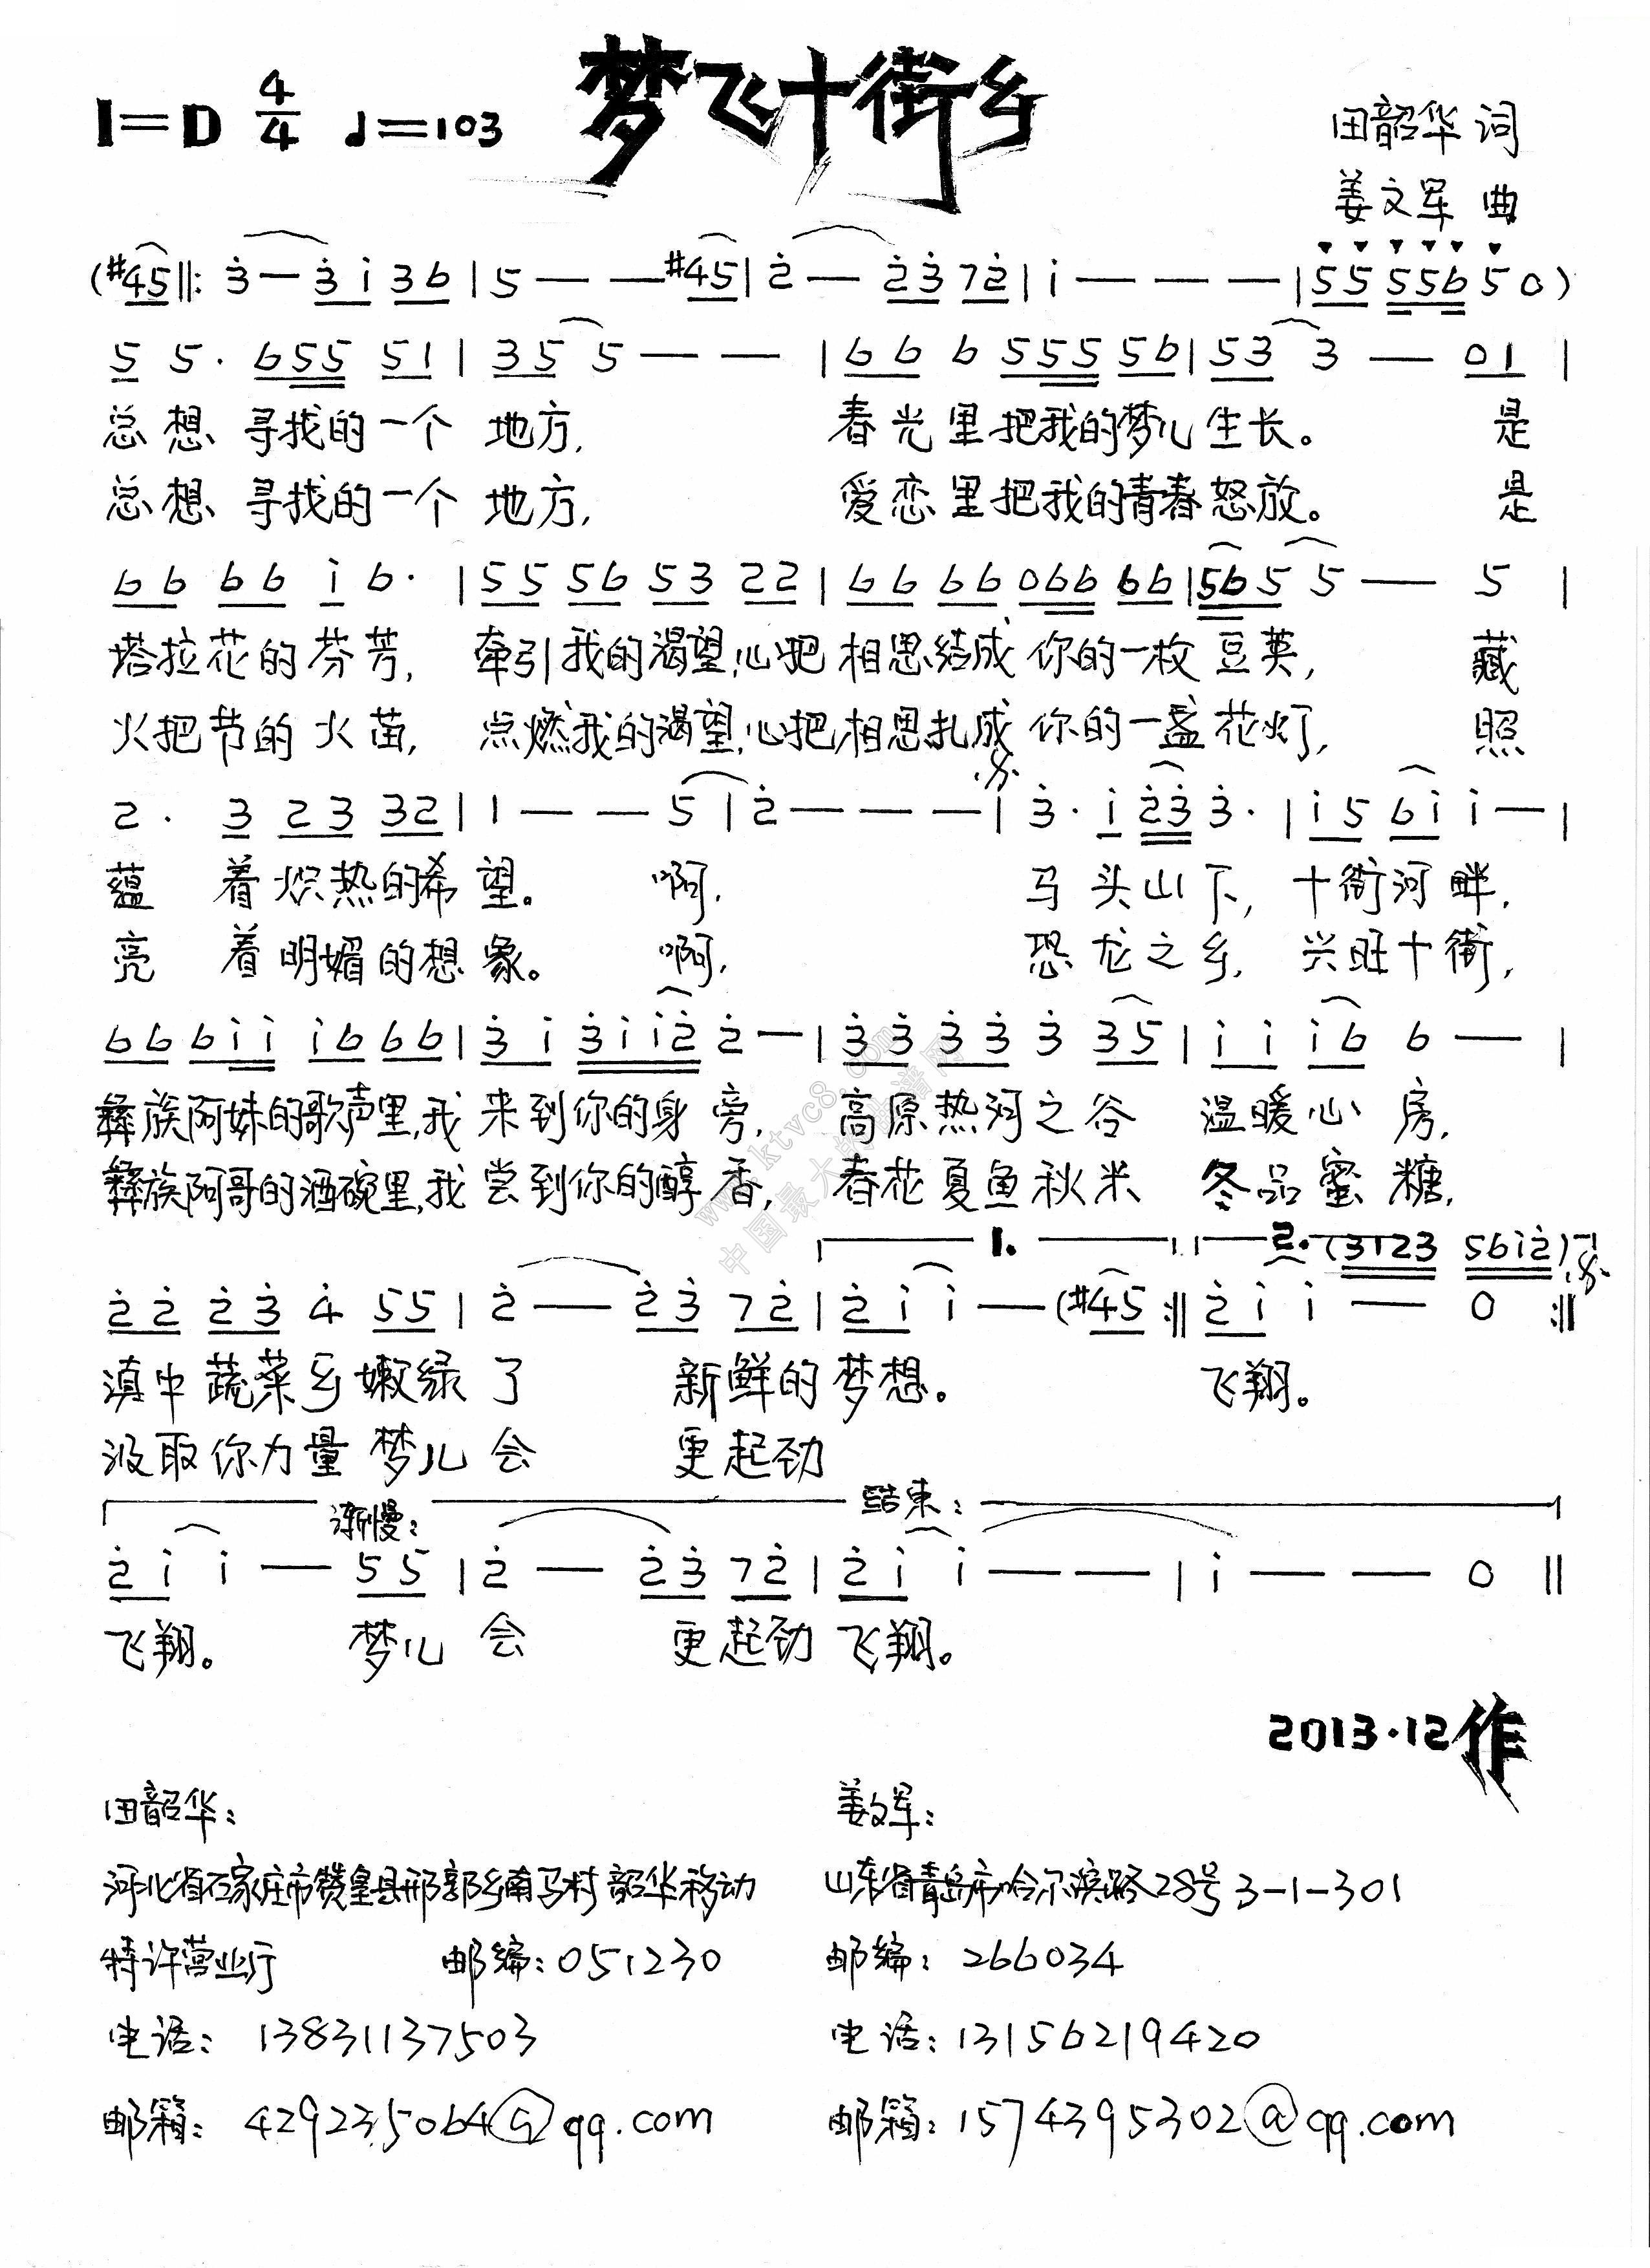 梦飞十街乡
1=D 4/4 ♩=103
田韶华 词
姜文军 曲
(#45‖: 3̇ — 3̇ i 36 | 5 — — #45 | 2̇ — 2̇3̇ 72̇ | i — — — | 55 556 5 0)
5 5· 655 51 | 35 5 — — | 66 6 555 56 | 53 3 — 01 |
总想 寻找的一个 地方, 春光里把我的梦儿生长。 是
总想 寻找的一个 地方, 爱恋里把我的青春怒放。 是
66 66 i 6· | 55 56 53 22 | 66 66 066 66 | 565 5 — 5 |
塔拉花的芬芳, 牵引我的渴望,心把相思结成你的一枚豆荚, 藏
火把节的火苗, 点燃我的渴望,心把相思扎成你的一盏花灯, 照
2· 3 23 32 | 1 — — 5 | 2̇ — — — | 3̇· i 2̇3̇ 3̇· | i5 6i i — |
蕴 着炽热的希望。 啊, 马头山下, 十街河畔,
亮 着明媚的想象。 啊, 恐龙之乡, 兴旺十街,
66 6ii i6 66 | 3̇ i 3̇ii2̇ 2̇ — | 3̇3̇ 3̇3̇ 3̇ 35 | i i i6 6 — |
彝族阿妹的歌声里,我来到你的身旁, 高原热河之谷 温暖心房,
彝族阿哥的酒碗里,我尝到你的醇香, 春花夏鱼秋米 冬品蜜糖,
1. 2. (3123 56i2̇)
2̇2̇ 2̇3̇ 4̇ 55 | 2̇ — 2̇3̇ 72̇ | 2̇i i — (#45 :‖ 2̇i i — 0 :‖
滇中蔬菜乡嫩绿了 新鲜的梦想。 飞翔。
汲取你力量梦儿会 更起劲
渐慢: 结束:
2̇i i — 55 | 2̇ — 2̇3̇ 72̇ | 2̇i i — — | i — — 0 ‖
飞翔。 梦儿会 更起劲飞翔。
2013·12作
田韶华:
河北省石家庄市赞皇县邢郭乡南马村韶华移动
特许营业厅 邮编:051230
电话: 13831137503
邮箱: 429235064@qq.com
姜文军:
山东省青岛市哈尔滨路28号3-1-301
邮编: 266034
电话:13156219420
邮箱:1574395302@qq.com
www.ktvc8.com
中国最大的曲谱网